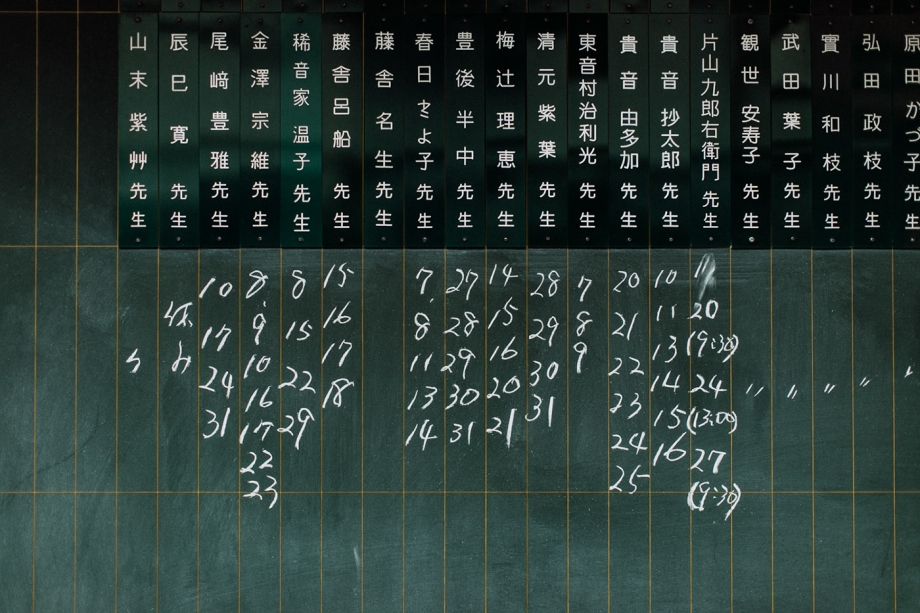 原田かつ子
弘田政枝先生
實川和枝先生
武田葉子先生
観世安寿子先生
片山九郎右衛門先生
貴音抄太郎先生
貴音由多加先生
東音村治利光
清元紫葉先生
梅辻理恵先生
豊後半中先生
春日とよ子先生
藤舎名生先生
藤舎呂船先生
稀音家温子先生
金澤宗維先生
尾﨑豊雅先生
辰巳寛先生
山末紫艸先生
〃
〃
〃
〃
〃
20
(9:30)
24
(13:00)
27
(9:30)
10
11
13
14
15
16
20
21
22
23
24
25
7
8
9
28
29
30
31
14
15
16
20
21
27
28
29
30
31
7
8
11
13
14
15
16
17
18
8
15
22
29
8
9
10
16
17
22
23
10
17
24
31
休み